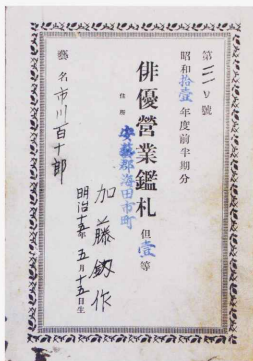 第二一〇號
昭和拾壹年度前半期分
俳優營業鑑札 但壹等
住所 安藝郡海田市町
加藤釼作
明治十五年五月十五日生
藝名 市川百十郎